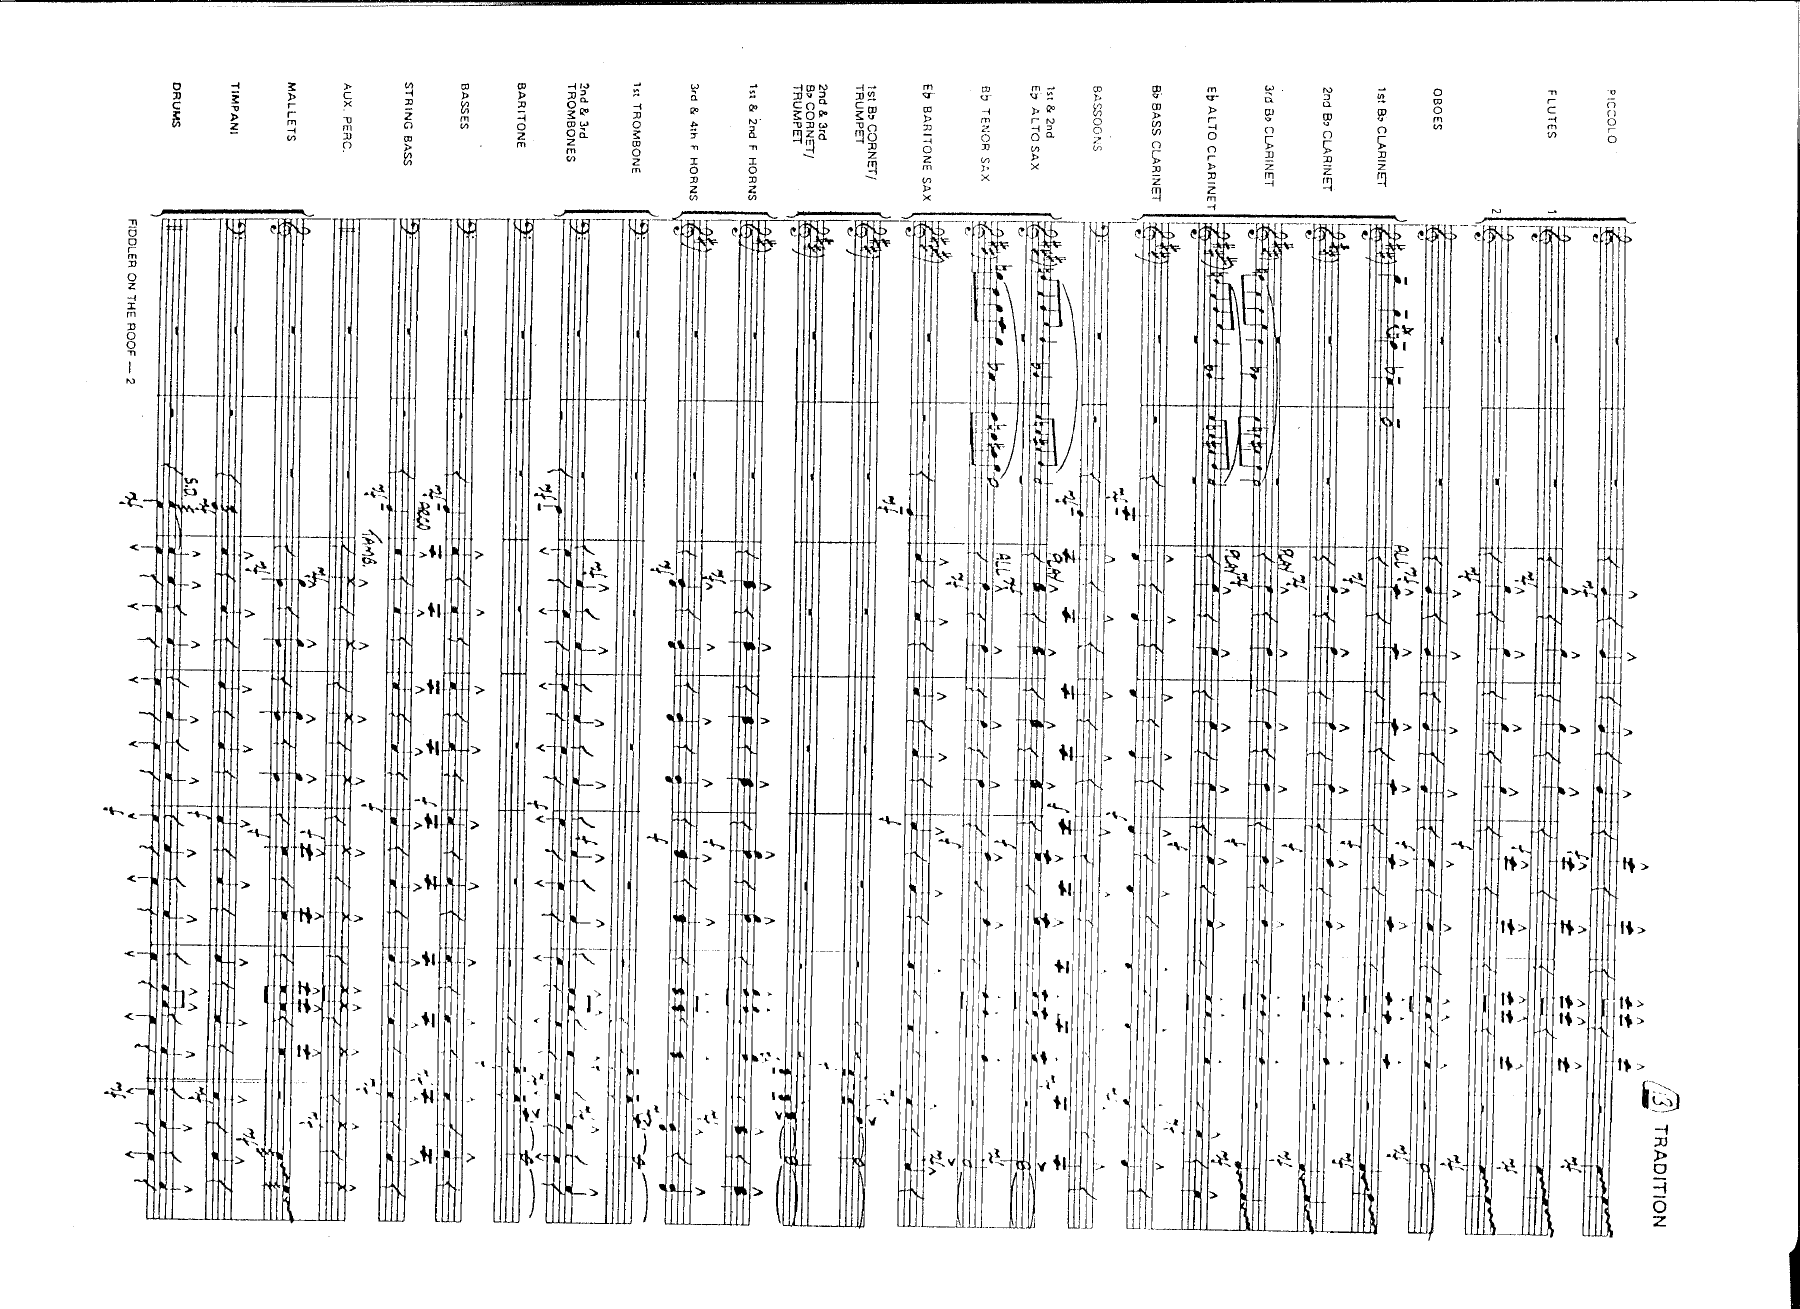 13 TRADITION
PICCOLO
FLUTES
1
2
OBOES
1st B♭ CLARINET
2nd B♭ CLARINET
3rd B♭ CLARINET
E♭ ALTO CLARINET
B♭ BASS CLARINET
BASSOONS
1st & 2nd
E♭ ALTO SAX
B♭ TENOR SAX
E♭ BARITONE SAX
1st B♭ CORNET/
TRUMPET
2nd & 3rd
B♭ CORNET/
TRUMPET
1st & 2nd F HORNS
3rd & 4th F HORNS
1st TROMBONE
2nd & 3rd
TROMBONES
BARITONE
BASSES
STRING BASS
AUX. PERC.
MALLETS
TIMPANI
DRUMS
ALL mf
PLAY mf
PLAY mf
PLAY
ALL mf
ARCO
TAMB.
S.D.
mf
f
FIDDLER ON THE ROOF — 2